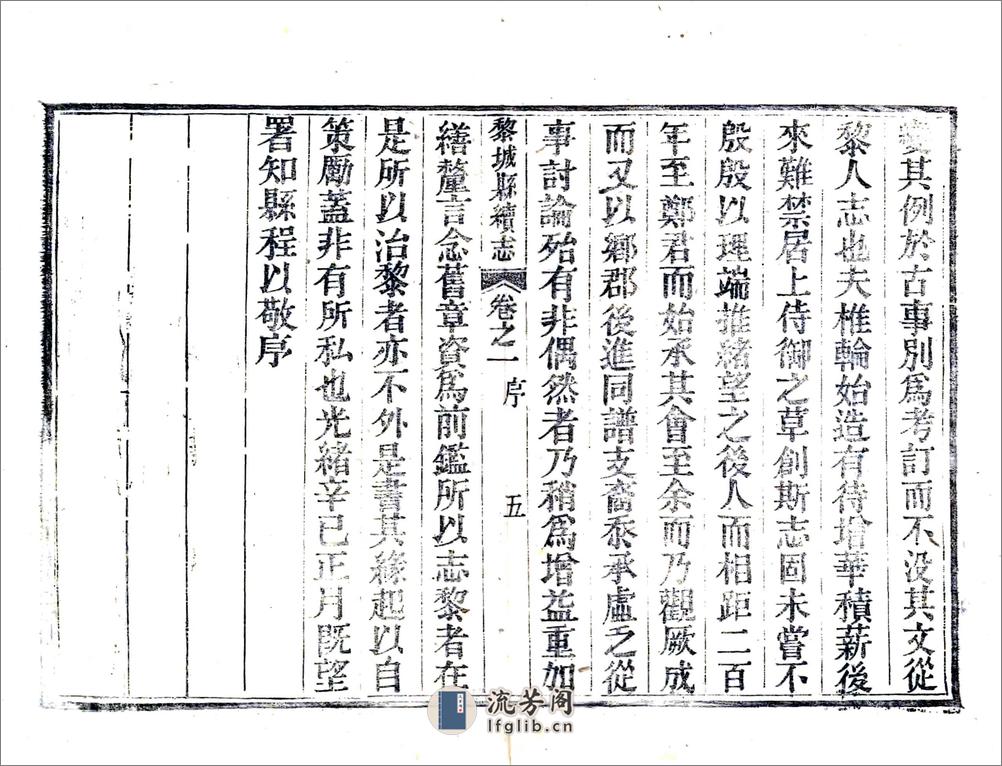 變其例於古事別爲考訂而不没其文從
黎人志也夫椎輪始造有待增華積薪後
來難禁居上侍御之草創斯志固未嘗不
殷殷以理端推緒望之後人而相距二百
年至鄭君而始承其會至余而乃觀厥成
而又以鄉郡後進同譜支裔忝承虛乏從
事討論殆有非偶然者乃稍爲增益重加
黎城縣續志 卷之一 序 五
繕釐言念舊章資爲前鑑所以志黎者在
是所以治黎者亦不外是書其緣起以自
策勵蓋非有所私也光緒辛巳正月旣望
署知縣程以敬序
流芳阁
lfglib.cn